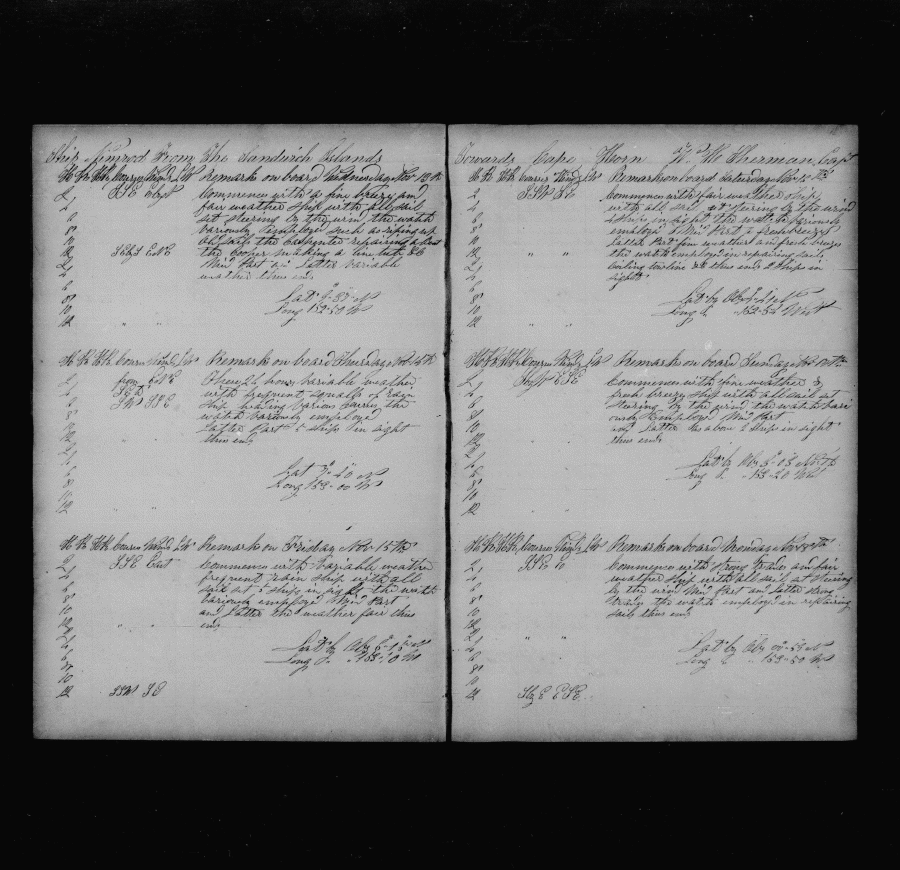 Ship Nimrod From the Sandwich Islands
H K Hk Courses Winds Lw Remarks on board Wednesday Nov 13th
2 SSE EbyN Commence with a fine breeze and
4 fair weather Ship with all sail
6 set steering by the wind the watch
8 variously employed such as
10 old sails the Carpenter repairing a boat
12 SEbS ENE the Cooper making a line tub &c
2 Mid Part an Latter variable
4 weather thus ends
6
8 Lat
10 " " Long 152-50 W
12
H K Hk Courses Winds Lw Remarks on board Thursday Nov 14th
2 from ENE These 24 hours variable weather
4 with frequent squalls of rain
6 SW SSE Ship heading various courses the
8 watch variously employed
10 Latter Part 5 ships in sight
12 " thus ends
2
4
6 Lat 7-40 N
8 Long 153-00 W
10
12 "
H K Hk Courses Winds Lw Remarks on Friday Nov 15th
2 SSE East Commence with variable weather
4 frequent rain Ship with all
6 sail set 5 ships in sight the watch
8 variously employed Mid Part
10 and Latter the weather fair thus
12 " " ends
2
4 Lat by Obs
6 Long " 153-10 W
8
10
12 SSW SE
Towards Cape Horn W H Sherman Capt
H K Hk Courses Winds Lw Remarks on board Saturday Nov
2 SSW SE Commence with fair weather Ship
4 with all sail set steering by the wind
6 ships in sight the watch variously
8 employed Mid Part a fresh breeze
10 Latter Part fine weather an fresh breeze
12 " " the watch employed in repairing sails
2 coiling towline &c thus ends 2 ships in
4 sight
6
8 Lat by Obs
10 " " Long " 152-52 West
12
H K Hk Courses Winds Lw Remarks on board Sunday Nov 17th
2 SbyW ESE Commence with fine weather &
4 fresh breeze ship with all sail set
6 steering by the wind the watch vari
8 ously employed Mid Part
10 and Latter as above 2 ships in sight
12 " thus ends
2
4 Lat by Obs
6 Long " 153-20 W
8
10
12
H K Hk Courses Winds Lw Remarks on board Monday Nov 18th
2 SSE Commence with strong trades an fair
4 weather ship with all sail set steering
6 by the wind Mid Part an Latter strong
8 trades the watch employed in repairing
10 sails thus ends
12
2 " "
4 Lat by Obs 00-59 N
6 Long " 153-50 W
8
10
12 SbyE ESE